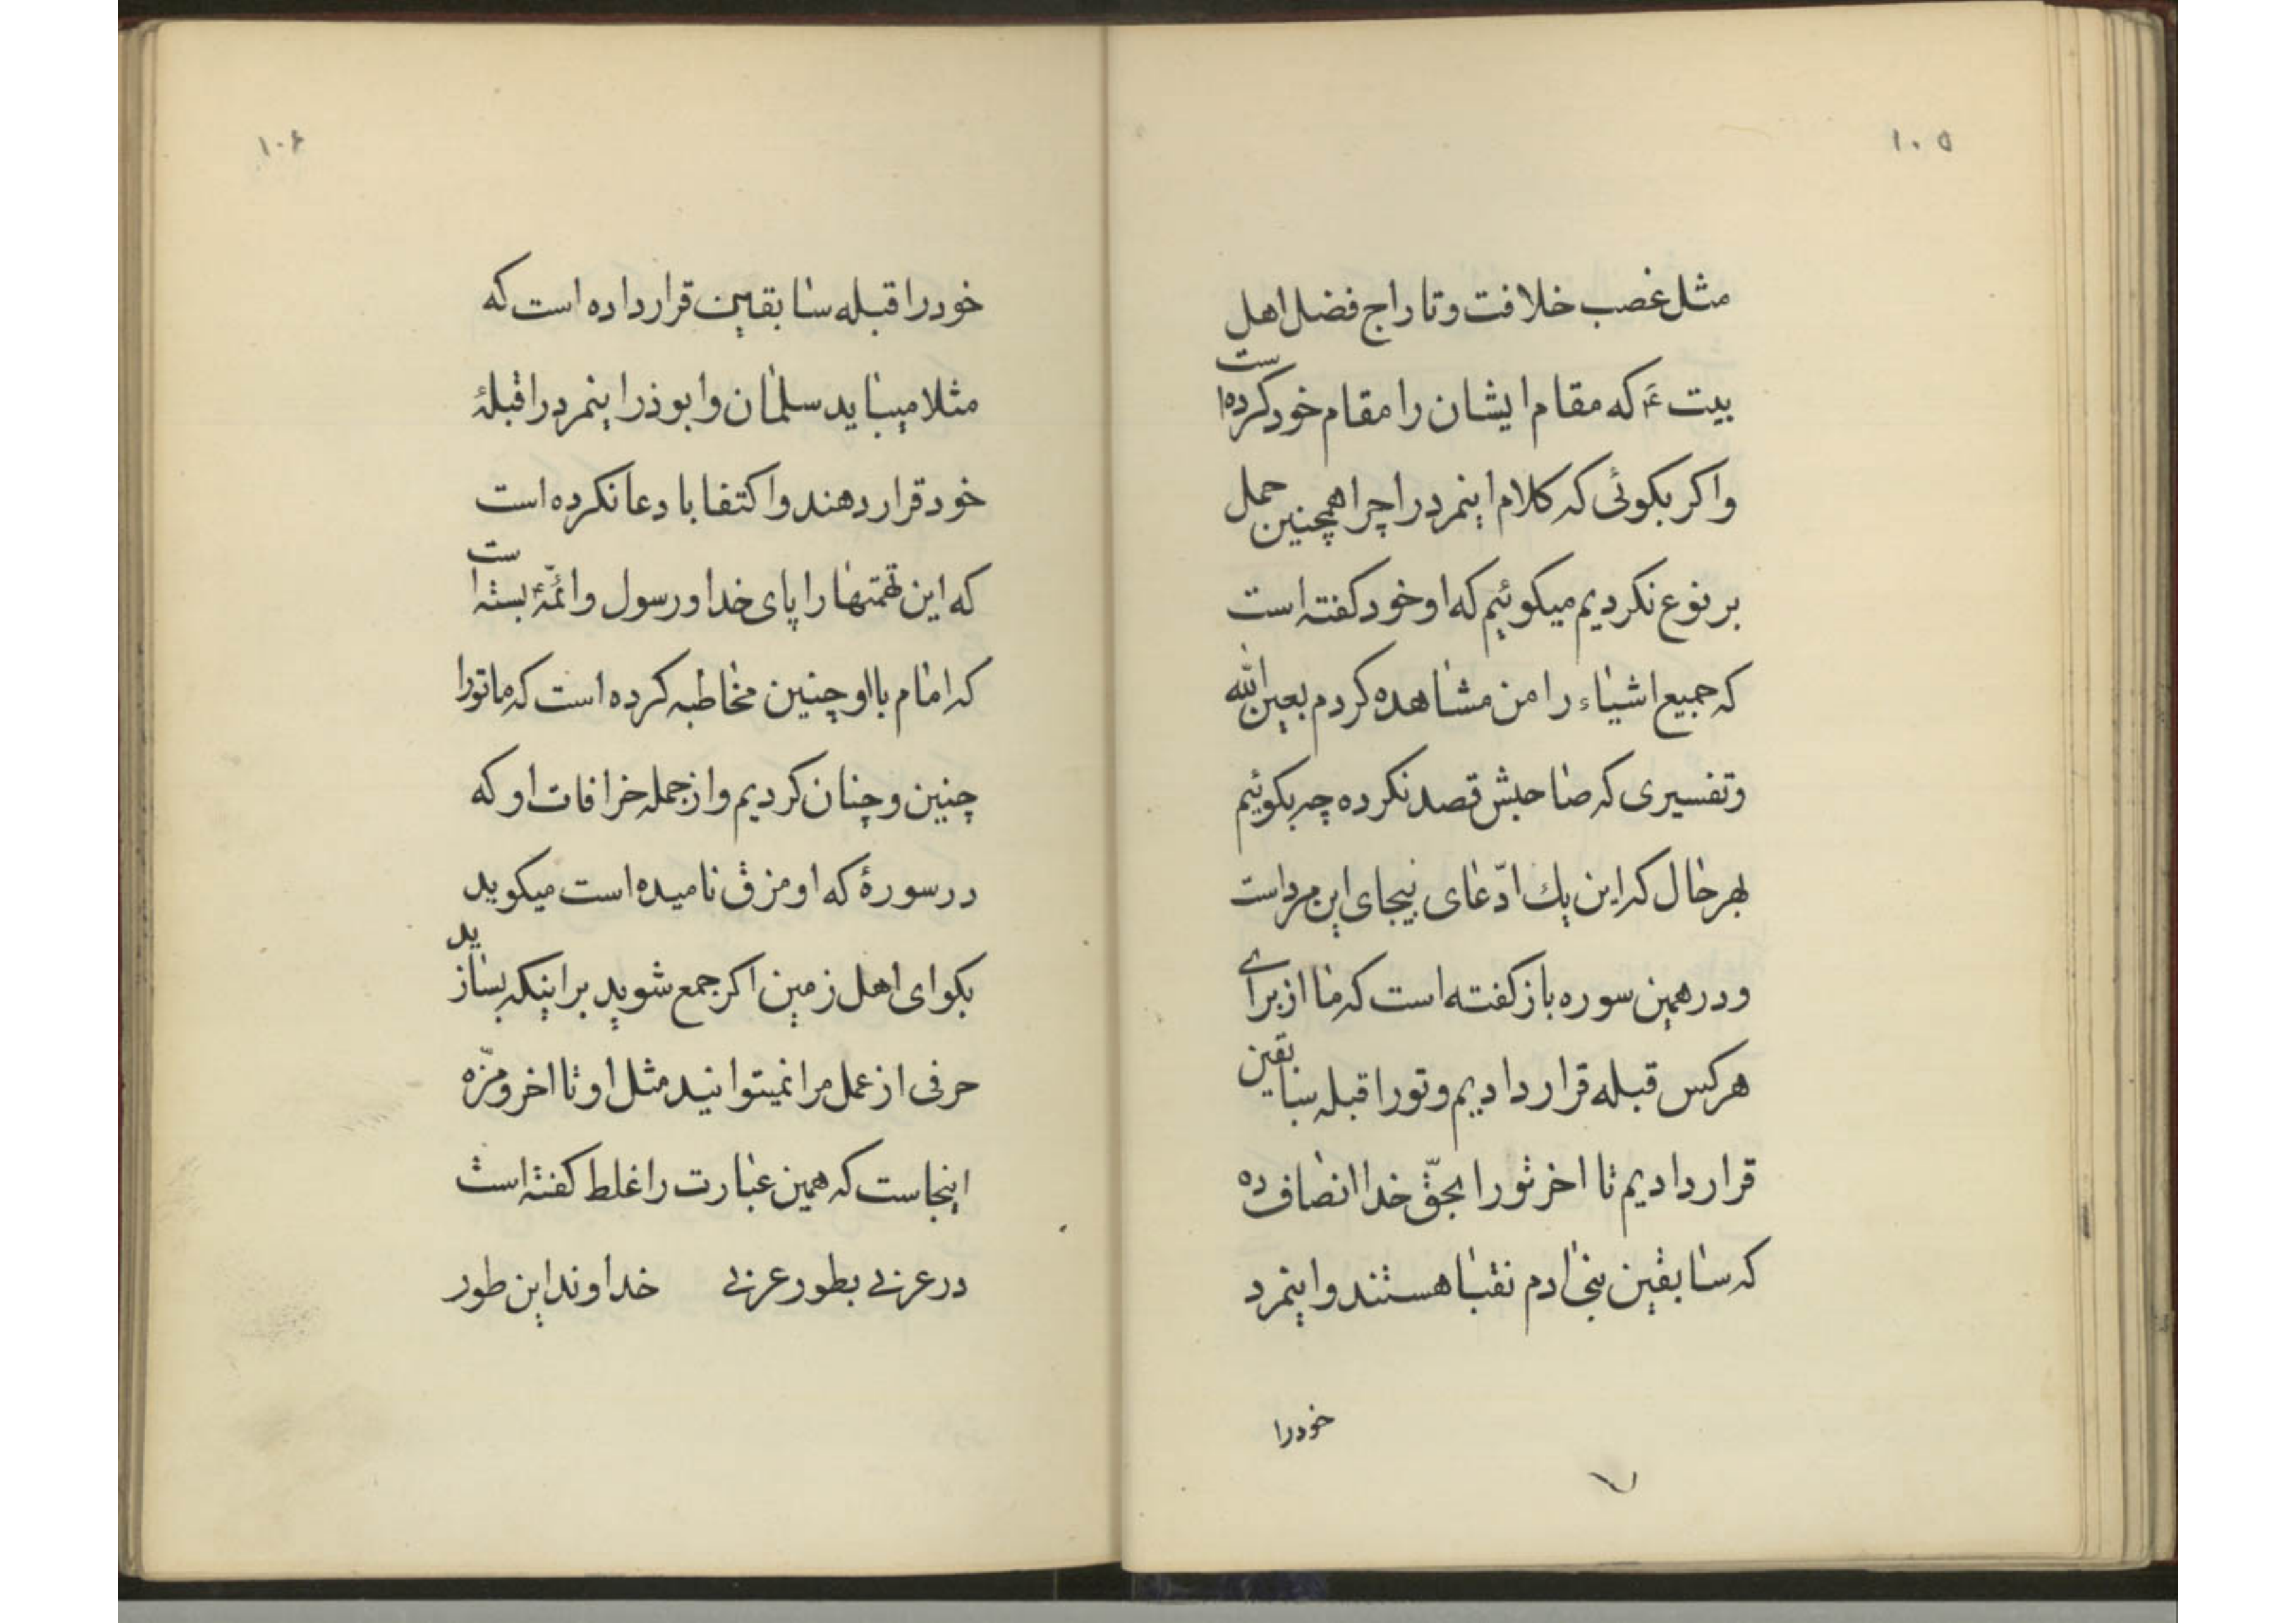 ۱۰۵
مثل غصب خلافت و تاراج فضل اهل
بیت ع که مقام ایشان را مقام خود کرده است
و اکر بکوئی که کلام اینمرد را چرا همچنین حمل
بر نوع نکردیم میکوئیم که او خود کفته است
که جمیع اشیاء را من مشاهده کردم بعین الله
و تفسیری که صاحبش قصد نکرده چه بکوئیم
بهر حال که این یك ادّعای بیجای این مرد است
و در همین سوره باز کفته است که ما از برای
هر کس قبله قرار دادیم و تو را قبله سابقین
قرار دادیم تا اخر تو را بحقّ خدا انصاف ده
که سابقین بنی ادم نقبا هستند و اینمرد
خود را
۱۰۶
خود را قبله سابقین قرار داده است که
مثلا میباید سلمان و ابوذر اینمرد را قبلهٔ
خود قرار دهند و اکتفا با دعا نکرده است
که این تهمتها را پای خدا و رسول و ائمّهٔ بسته است
که امام با او چنین مخاطبه کرده است که ما تو را
چنین و چنان کردیم و از جمله خرافات او که
در سورهٔ که او مزق نامیده است میکوید
بکو ای اهل زمین اکر جمع شوید بر اینکه بسازید
حرفی از عمل مرا نمیتوانید مثل او تا اخر و مزّه
اینجاست که همین عبارت را غلط کفته است
در عربی بطور عربی خداوند این طور